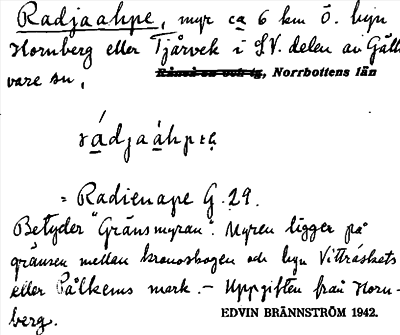 Radjaahpe, myr ca 6 km Ö. byn
Hornberg eller Tjårvek i S.V. delen av Gälli-
vare sn,
Norrbottens län
rádjaáhpɛ
= Radienape G. 29.
Betyder "Gränsmyran". Myren ligger på
gränsen mellan kronoskogen och byn Vitträskets
eller Pålkems mark. – Uppgiften från Horn-
berg.
EDVIN BRÄNNSTRÖM 1942.